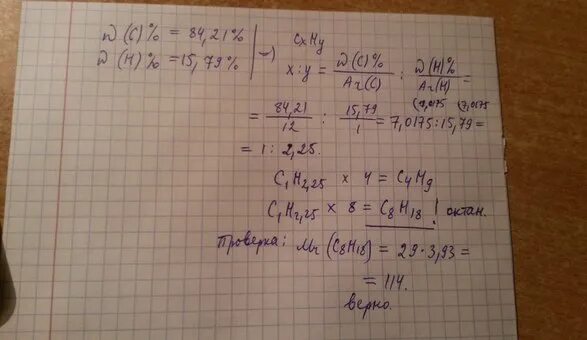 W (C)% = 84,21%
W (H)% = 15,79%
CxHy
x : y = W(C)% / Ar(C) : W(H)% / Ar(H) =
= 84,21 / 12 : 15,79 / 1 = 7,0175 : 15,79 = (7,0175 (7,0175
= 1 : 2,25.
C1H2,25 x 4 = C4H9
C1H2,25 x 8 = C8H18 ! октан.
Проверка: Mr (C8H18) = 29 · 3,93 =
= 114.
верно.